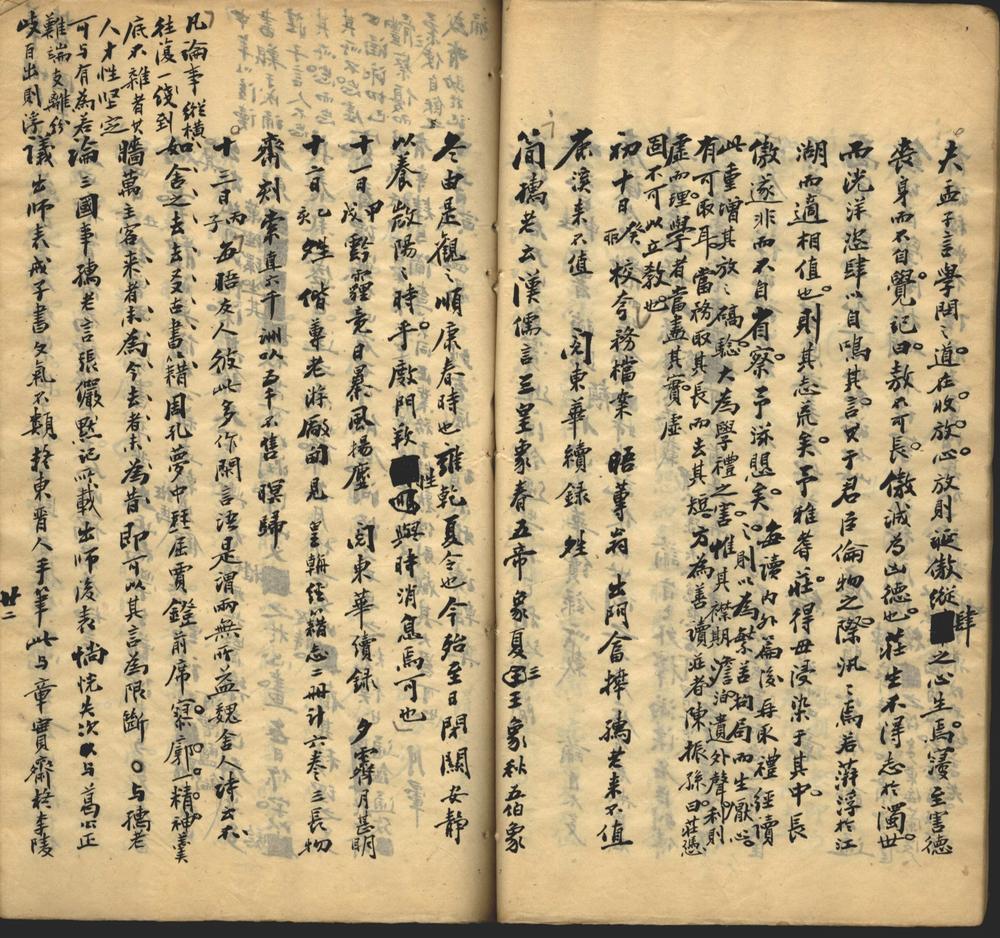 夫孟子言學問之道在收放心放則縱傲縱肆之心生焉寖至害德
喪身而不自覺記曰敖不可長傲誠為凶德也莊生不得志於濁世
而洸洋恣肆以自鳴其言其于君臣倫物之際汎汎焉若萍浮於江
湖而適相值也則其志荒矣予雅善莊得毋浸染于其中長
傲遂非而不自省察予滋懼矣每讀內外篇後再取禮經讀
此重增其放之礪大為學禮之害惟其襟期澹泊遺外聲利則
有可取耳當務取其長而去其短方為善讀莊者陳振孫曰莊憑
虛而理學者當盡其實虛
固不可以立教也
初十日癸酉校今務檔案晤蓴翁出門奮撻孺老來不值
康溪來不值閱東華續錄
簡孺老云漢儒言三皇象春五帝象夏三王象秋五伯象
冬由是觀之順康春時也雍乾夏令也今殆至日閉關安静
以養微陽之時乎廠門欵冊與時消息焉可也
十一日甲戌黔霾竟日暴風揚塵閱東華續錄夕霽月甚明
十二日乙亥偕蓴老游廠甸見皇朝經籍志二冊計六卷三長物
齋刻索直六千洲以五千不售暝歸
十三日丙子每晤友人彼此多作閒言語是謂兩無所益魏舍人詩云不
如舍之去去友古書籍周孔夢中經屈賈鐙前席寥廓一精神善美
牆萬主客來者未為今去者未為昔即可以其言為限斷與孺老
論三國事孺老言張儼默記所載出師後表惝恍失次與葛公正
議出師表成子書文氣不類於東晋人手筆此與章實齋於李陵
凡論事縱橫
往復一綫到
底不雜者其
人才性堅定
可与有為若
難端支離紛
岐百出則浮
廿二